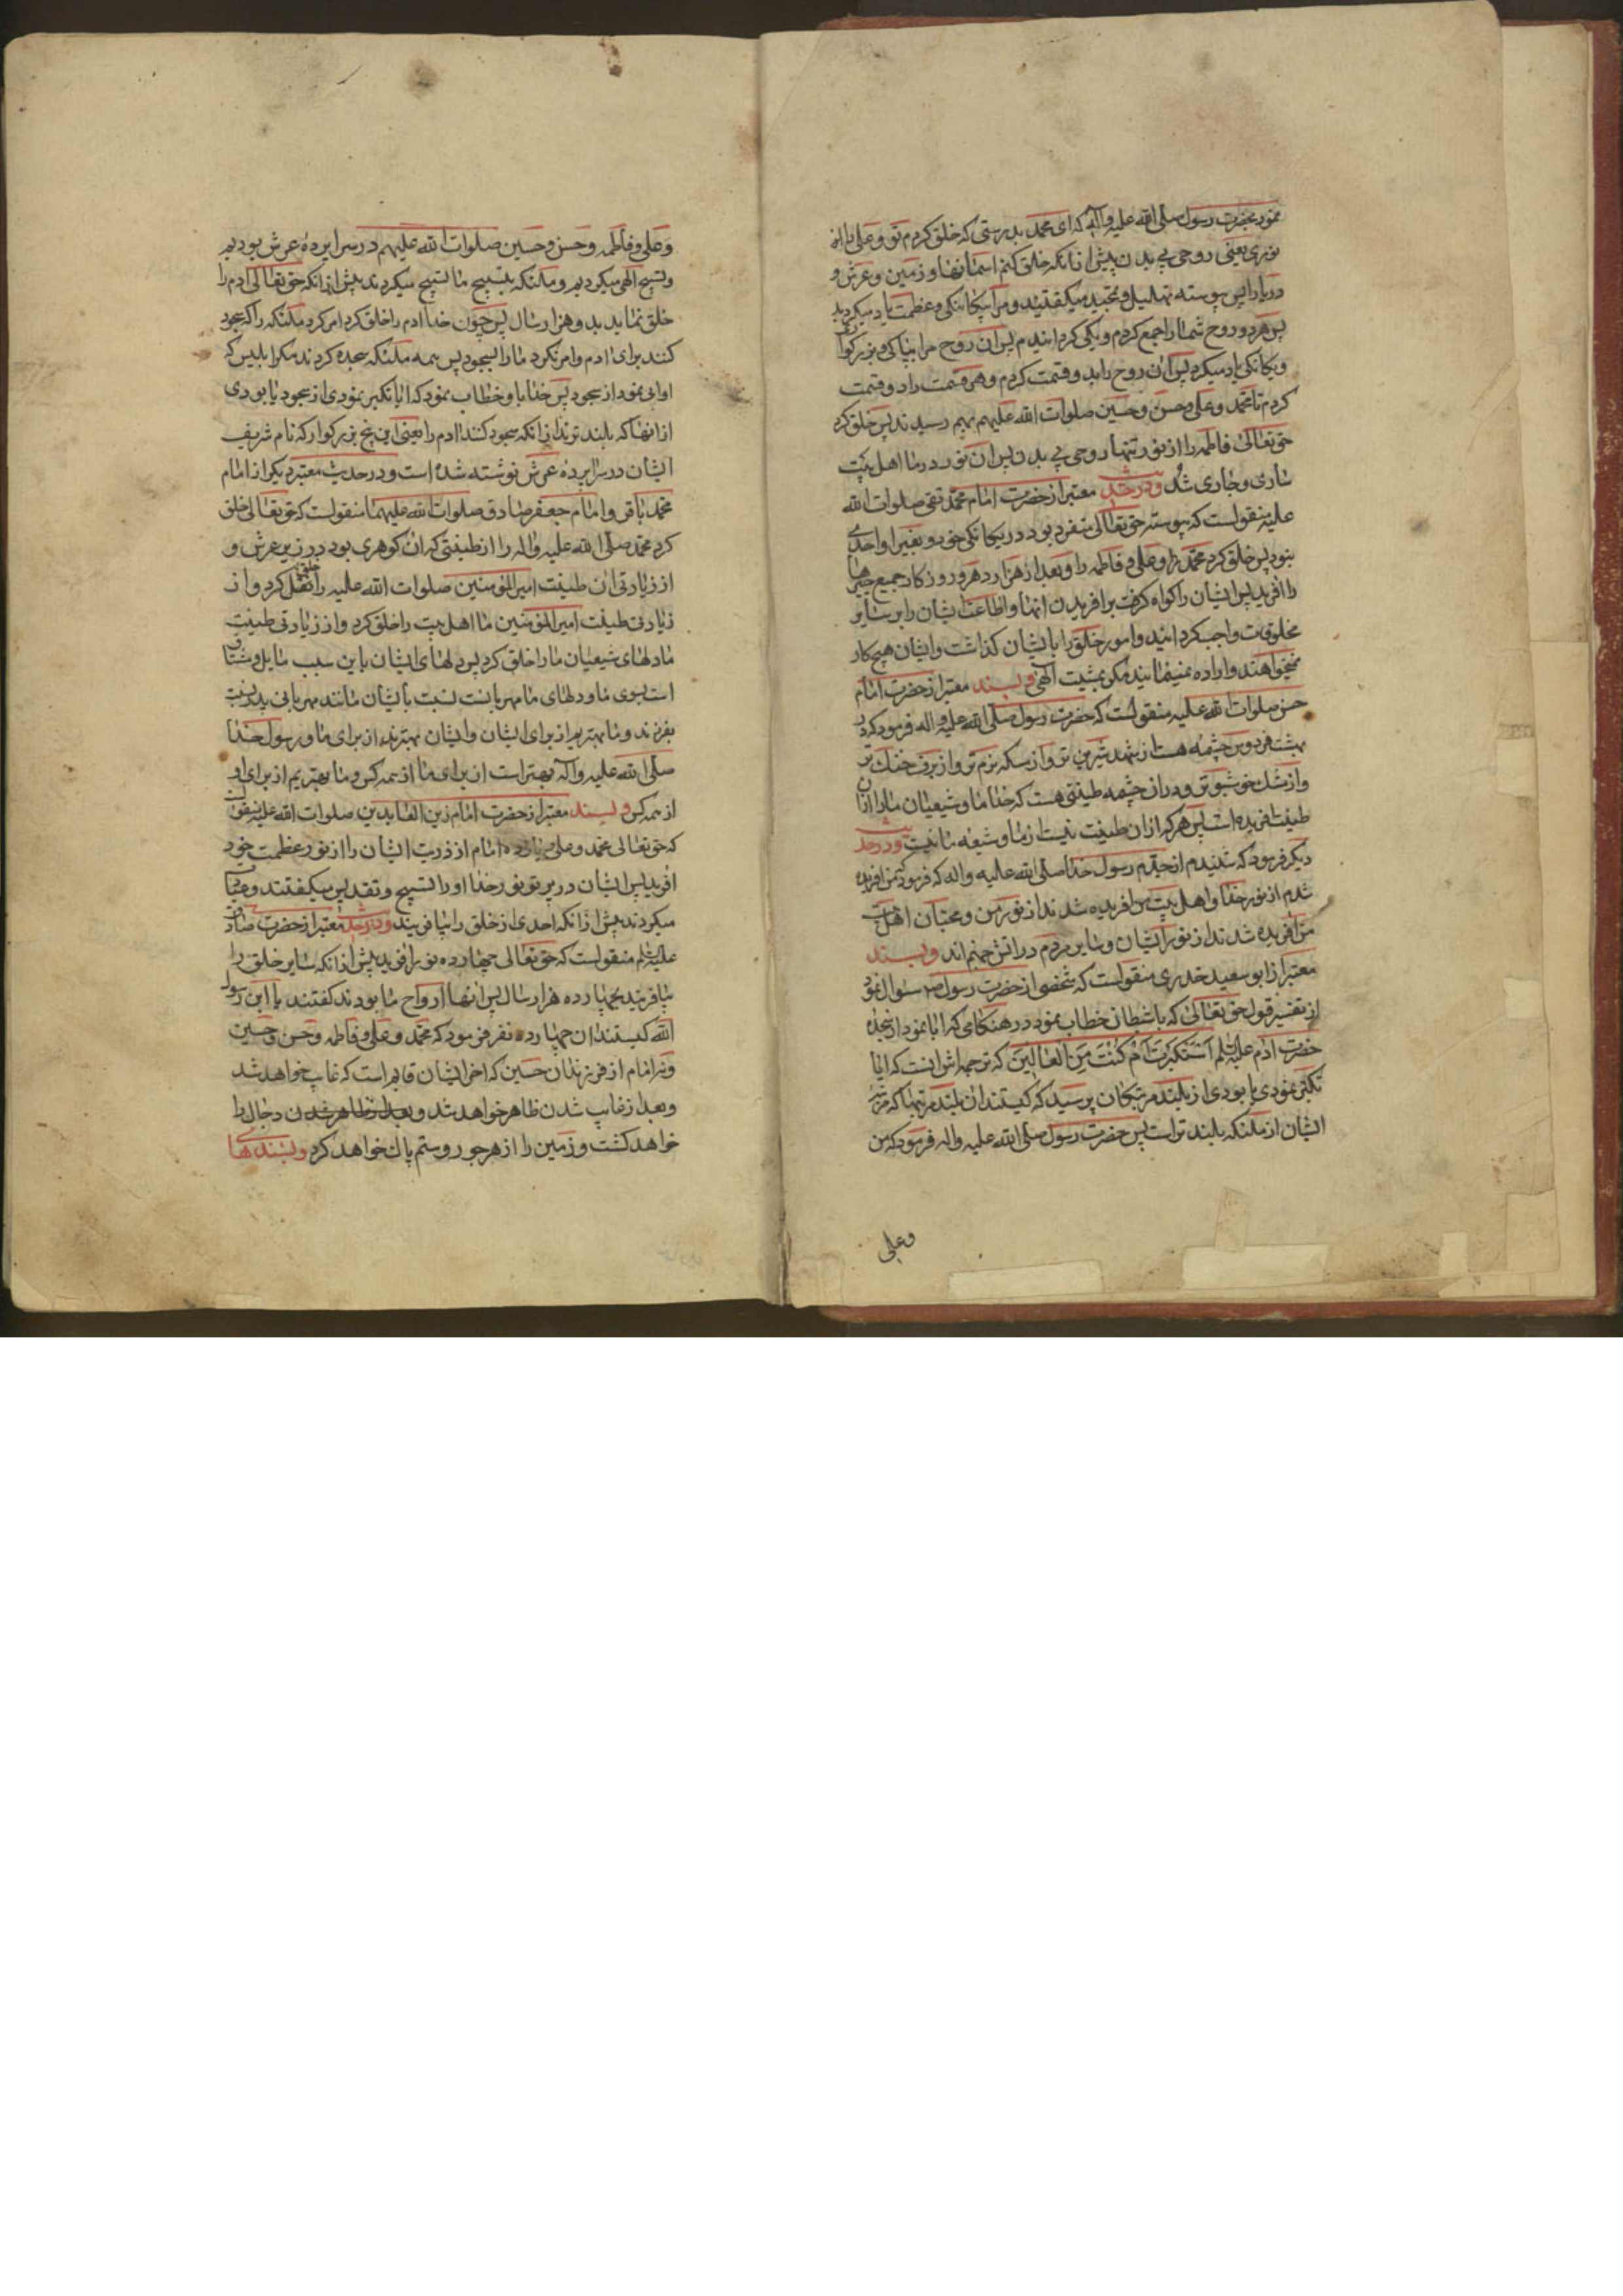 نمود بحضرت رسول صلی الله علیه و آله که ای محمد بدرستی که خلق کردم تو و علی را
نوری یعنی روحی بی بدن پیش از انکه خلق کنم اسمانها و زمین و عرش و
دریا را پس پیوسته تهلیل و تمجید میکفتید و مرا بیکانکی و عظمت یاد میکردید
پس هر دو روح شما را جمع کردم و یکی کردانیدم پس ان روح مرا بپاکی و بزرکواری
و یکانکی یاد میکرد پس ان روح را بدو قسمت کردم و هر قسمت را دو قسمت
کردم تا محمد و علی و حسن و حسین صلوات الله علیهم بهم رسیدند پس خلق کرد
حق تعالی فاطمه را از نور تنها روحی بی بدن پس ان نور در ما اهل بیت
ساری و جاری شد و در حدیث معتبر از حضرت امام محمد تقی صلوات الله
علیه منقولست که پیوسته حق تعالی متفرد بود در یکانکی خود و بغیر او احدی
نبود پس خلق کرد محمد را و علی و فاطمه را و بعد از هزار دهر و روزکار جمیع چیزها
را افرید پس ایشان را کواه کرفت بر افریدن انها و اطاعت ایشان را بر سایر
مخلوقات واجب کردانید و امور خلق را بایشان کذاشت و ایشان هیچ کار
نمیخواهند و اراده نمینمایند مکر بمشیت الهی و بسند معتبر از حضرت امام
حسن صلوات الله علیه منقولست که حضرت رسول صلی الله علیه و اله فرمود که در
بهشت فردوس چشمه هست از شهد شیرین تر و از مسکه نرم تر و از برف خنک تر
و از مشک خوشبوتر و در ان چشمه طینتی هست که خدا ما و شیعیان ما را از ان
طینت افریده است پس هر که از ان طینت نیست از ما و شیعه ما نیست و در حدیث
دیکر فرمود که شنیدم از جدم رسول خدا صلی الله علیه و اله که فرمود که من افریده
شدم از نور خدا و اهل بیت من افریده شدند از نور من و محبان اهل بیت
من افریده شدند از نور ایشان و سایر مردم در اتش جهنم اند و بسند
معتبر از ابو سعید خدری منقولست که شخصی از حضرت رسول ص سؤال نمود
از تفسیر قول حق تعالی که با شیطان خطاب نمود در هنکامی که ابا نمود از سجده
حضرت ادم علیه السلم أستکبرت أم کنت من العالین که ترجمه اش اینست که ایا
تکبر نمودی یا بودی از بلند مرتبکان پرسید که کیستند ان بلند مرتبها که مرتبه
ایشان از ملئکه بلندتر است پس حضرت رسول صلی الله علیه و اله فرمود که من
وعلی
و علی و فاطمه و حسن و حسین صلوات الله علیهم در سراپرده عرش بودیم
و تسبیح الهی میکردیم و ملئکه بتسبیح ما تسبیح میکردند پیش از انکه حق تعالی ادم را
خلق نماید بدو هزار سال پس چون خدا ادم را خلق کرد امر کرد ملئکه را که سجود
کنند برای ادم و امر نکرد ما را بسجود پس همه ملئکه سجده کردند مکر ابلیس که
او ابی نمود از سجود پس خدا باو خطاب نمود که ایا تکبر نمودی از سجود یا بودی
از انها که بلندترند از انکه سجود کنند ادم را یعنی این پنج بزرکوار که نام شریف
ایشان در سراپرده عرش نوشته شده است و در حدیث معتبر دیکر از امام
محمد باقر و امام جعفر صادق صلوات الله علیهما منقولست که حق تعالی خلق
کرد محمد صلی الله علیه واله را از طینتی که ان کوهری بود در زیر عرش و
از زیادتی ان طینت امیر المؤمنین صلوات الله علیه را خلق کرد و از
زیادتی طینت امیر المؤمنین ما اهل بیت را خلق کرد و از زیادتی طینت
ما دلهای شیعیان ما را خلق کرد پس دلهای ایشان باین سبب مایل و مشتاق
است بسوی ما و دلهای ما مهربانست نسبت بایشان مانند مهربانی پدر نسبت
بفرزند و ما بهتریم از برای ایشان و ایشان بهترند از برای ما و رسول خدا
صلی الله علیه و آله بهتر است از برای ما از همه کس و ما بهتریم از برای او
از همه کس و بسند معتبر از حضرت امام زین العابدین صلوات الله علیه منقولست
که حق تعالی محمد و علی و یازده امام از ذریت ایشان را از نور عظمت خود
افرید پس ایشان در پرتو نور خدا او را تسبیح و تقدیس میکفتند و عبادت
میکردند پیش از انکه احدی از خلق را بیافریند و در حدیث معتبر از حضرت صادق
علیه السلم منقولست که حق تعالی چهارده نور افرید پیش از انکه سایر خلق را
بیافریند بچهارده هزار سال پس انها ارواح ما بودند کفتند یا ابن رسول
الله کیستند ان چهارده نفر فرمود که محمد و علی و فاطمه و حسن و حسین
و نه امام از فرزندان حسین که اخر ایشان قایم است که غایب خواهد شد
و بعد از غایب شدن ظاهر خواهد شد و بعد از ظاهر شدن دجال را
خواهد کشت و زمین را از هر جور و ستم پاک خواهد کرد و بسندهای